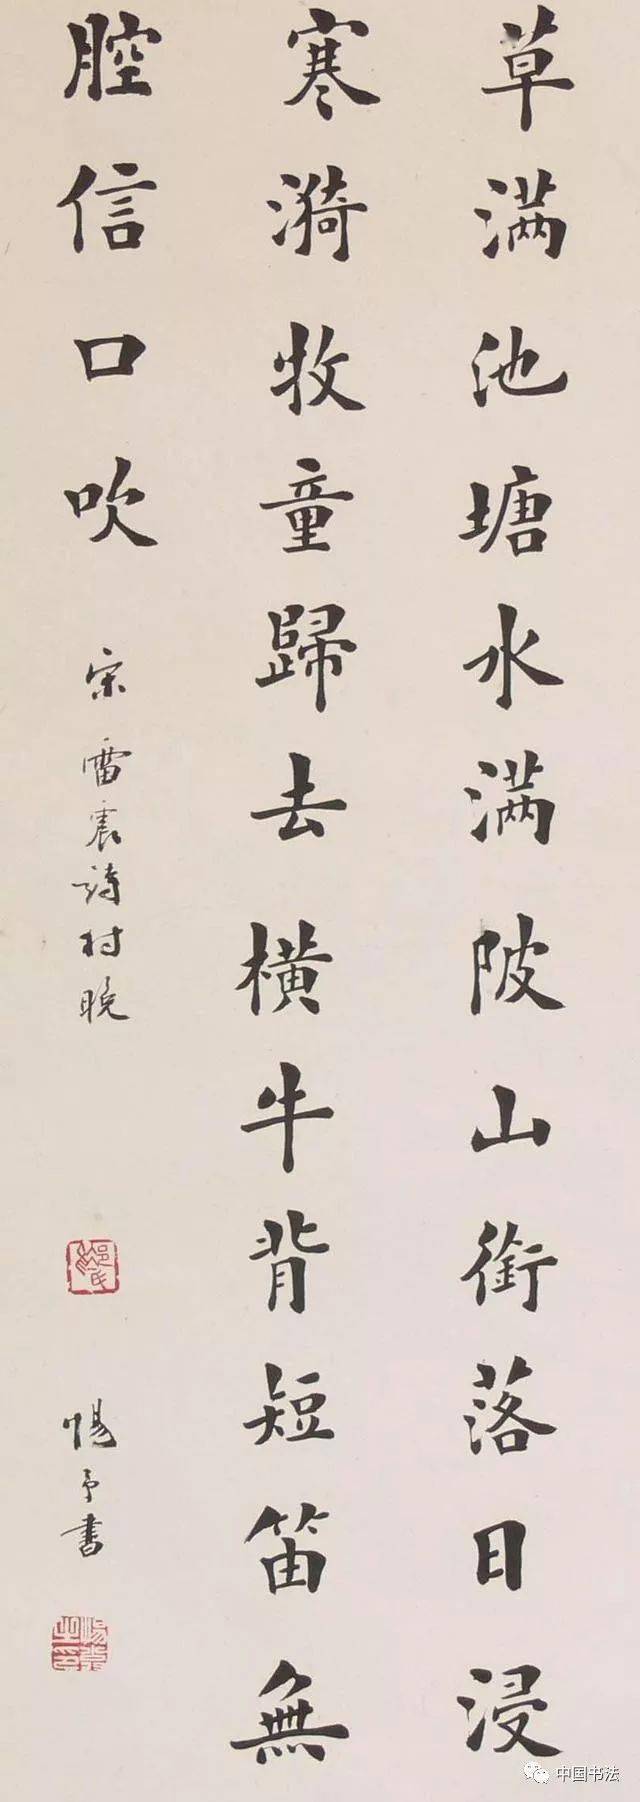 草满池塘水满陂山銜落日浸
寒漪牧童歸去横牛背短笛無
腔信口吹
宋雷震詩村晚
書
中国书法